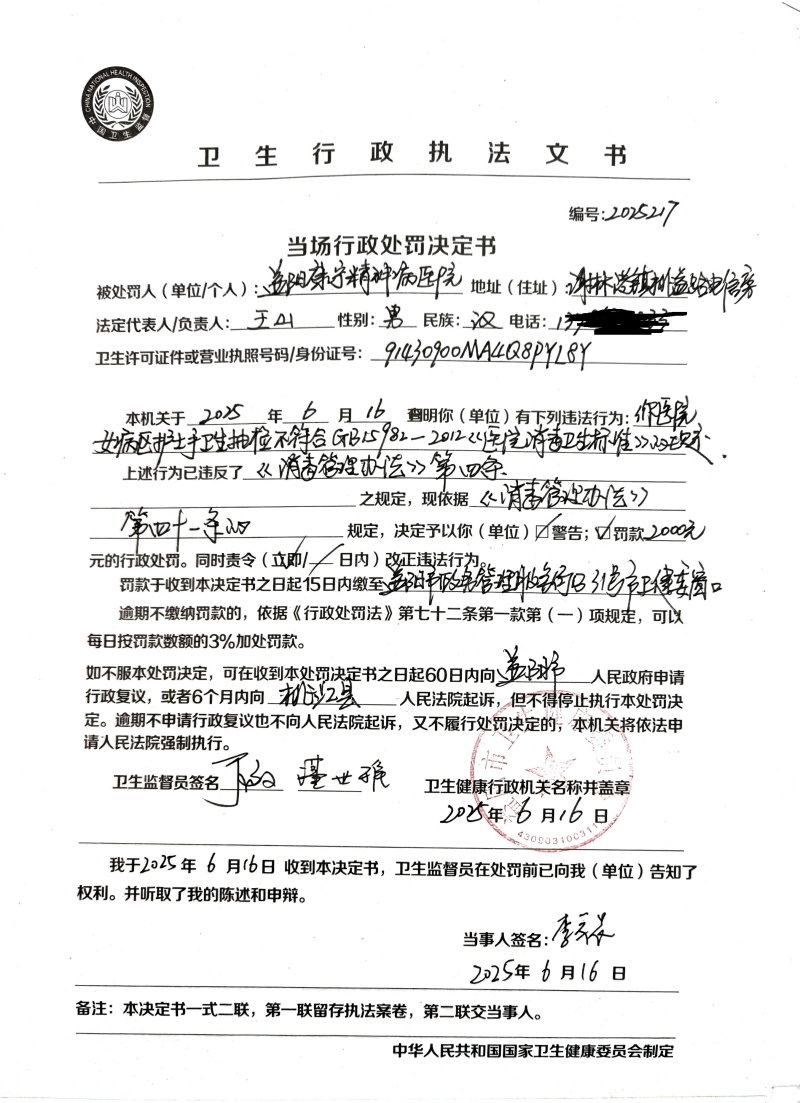 CHINA NATIONAL HEALTH INSPECTION
中国卫生监督
卫生行政执法文书
编号:2025217
当场行政处罚决定书
被处罚人（单位/个人）：益阳康宁精神病医院 地址（住址）谢林港镇
法定代表人/负责人： 性别：男 民族：汉 电话：
卫生许可证件或营业执照号码/身份证号： 91430900MA4Q8PYL8Y
本机关于 2025 年 6 月 16 查明你（单位）有下列违法行为：你医院
女病区护士手卫生抽检不符合GB15982-2012《医院消毒卫生标准》的规定.
上述行为已违反了《消毒管理办法》第四条
之规定，现依据《消毒管理办法》
第四十一条的 规定，决定予以你（单位）☑警告；☑罚款2000元
元的行政处罚。同时责令（立即/ 日内）改正违法行为。
罚款于收到本决定书之日起15日内缴至益阳市政务管理服务 31号市卫健委窗口
逾期不缴纳罚款的，依据《行政处罚法》第七十二条第一款第（一）项规定，可以
每日按罚款数额的3%加处罚款。
如不服本处罚决定，可在收到本处罚决定书之日起60日内向益阳市人民政府申请
行政复议，或者6个月内向桃江县人民法院起诉，但不得停止执行本处罚决
定。逾期不申请行政复议也不向人民法院起诉，又不履行处罚决定的，本机关将依法申
请人民法院强制执行。
卫生监督员签名 卫生健康行政机关名称并盖章
2025年 6 月 16 日
我于2025年 6 月16日 收到本决定书，卫生监督员在处罚前已向我（单位）告知了
权利。并听取了我的陈述和申辩。
当事人签名:
2025年 6 月 16 日
备注：本决定书一式二联，第一联留存执法案卷，第二联交当事人。
中华人民共和国国家卫生健康委员会制定